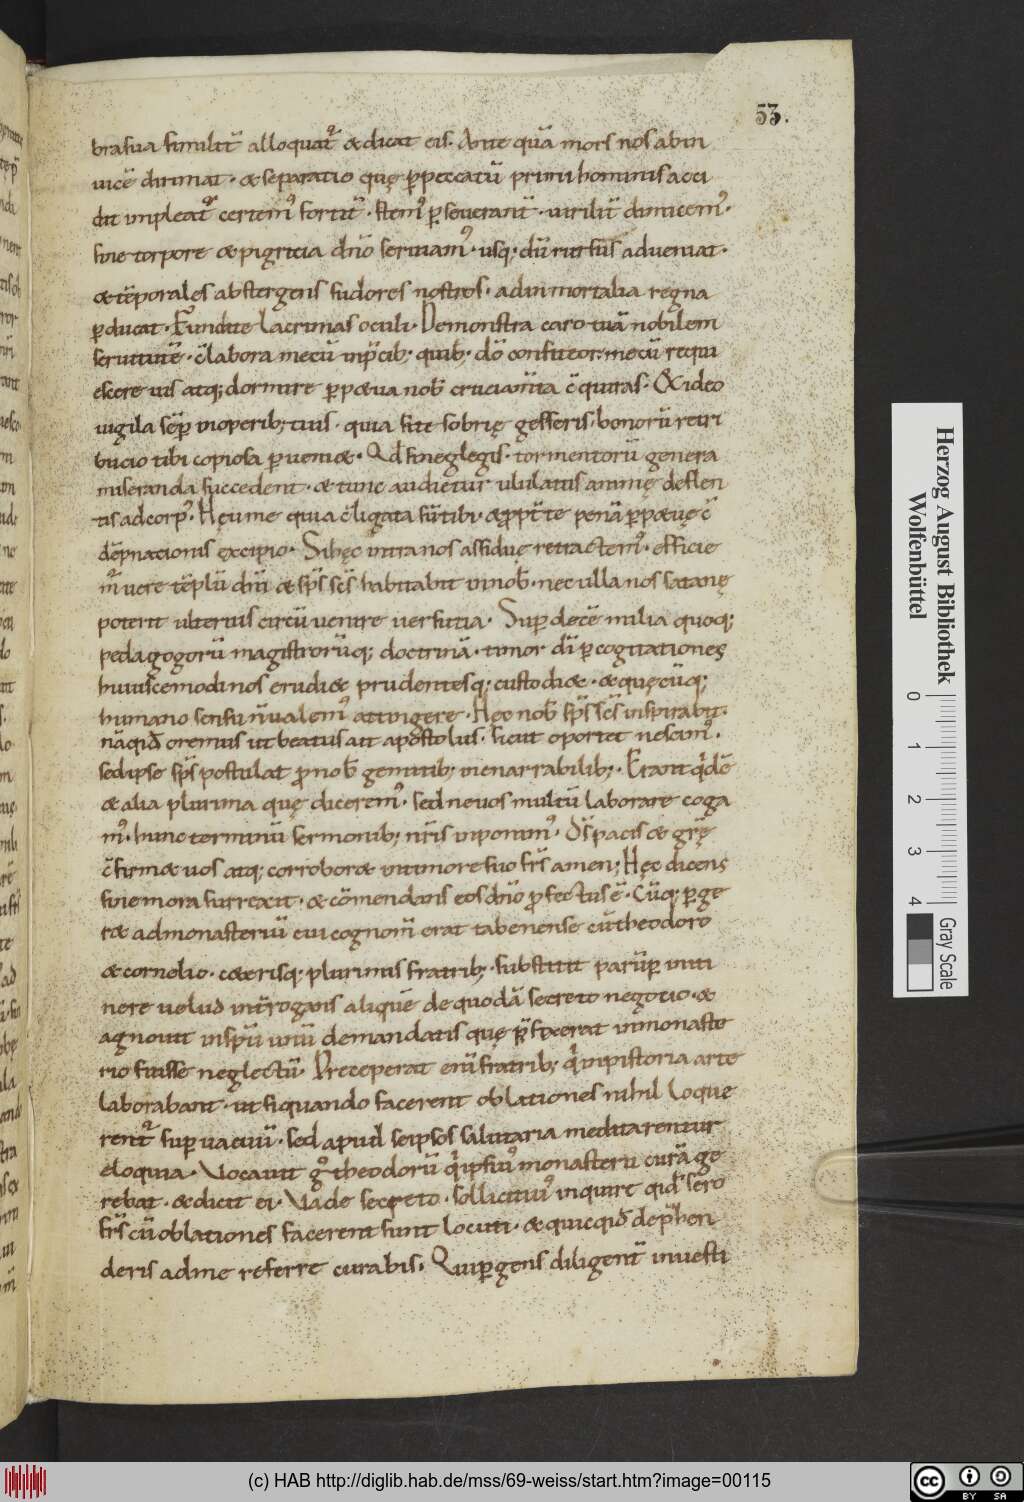 53.
bra sua similit̄ alloquat᷑ & dicat eis. Ante quā mors nos ab in
uicē dirimat. & separatio quę p̱ peccatū primi hominis acci
dit impleat᷑ certem᷒ fortit̄. stem᷒ p̱seuerant̄. uirilit̄ dimicem᷒.
sine torpore & pigricia dn̄o seruiam᷒. usq; dū rursus adueniat.
& tēporales abstergens sudores nostros. ad inmortalia regna
p̱ducat. Fundite lacrimas oculi. Demonstra caro tuā nobilem
seruitutē. c̄labora mecū in p̄cib; quib; dō confiteor. mecū requi
escere uis atq; dormire p̱p&ua nob̄ cruciam̄ta c̄quiras. Et ideo
uigila sēp̱ in operib; tuis. quia si te sobrię gesseris. bonorū retri
bucio tibi copiosa p̱ueni&. Qd̄ si neglegis. tormentorū genera
miseranda succedent. & tunc audietur ululatus animę deflen
tis ad corp᷒. Hęu me quia c̄ligata sū tibi. & ꝓpt̄ te penā p̱p&uę c̄
dēpnacionis excipio. Si hęc intra nos assiduę retractem᷒. efficie
m᷒ uere tēplū dn̄i & sp̄s sc̄s habitabit in nob̄. nec ulla nos satanę
poterit ulterius circūuenire uersutia. Sup̱ decē milia quoq;
pedagogorū magistrorūq; doctrinā. timor dī p̱ cogitationes
huiuscemodi nos erudi& prudentesq; custodi&. & quęcūq;
humano sensu n̄ ualem᷒ attingere. Hęc nob̄ sp̄s sc̄s inspirabit.
nā qid oremus ut beatus ait apostolus. sicut oportet nescim᷒.
sed ipse sp̄s postulat pro nob̄ gemitib; inenarrabilib;. Erant qidē
& alia plurima quę dicerem᷒. sed ne uos multū laborare coga
m᷒. hunc terminū sermonib; nr̄is inponim᷒. Ds̄ pacis & gr̄ę
c̄firm& uos atq; corrobor& in timore suo fr̄s amen; Hęc dicens
sine mora surrexit. & cōmendans eos dn̄o profectus ē. Cūq; p̱ge
r& ad monasteriū cui cognom̄ erat tabenense cū theodoro
& cornelio. c&erisq; plurimis fratrib;. substitit parūp̱ in iti
nere uelud int̄rogans aliquē de quodā secreto negotio. &
agnouit in sp̄u unū de mandatis quę p̄fixerat in monaste
rio fuisse neglectū. Preceperat enī fratrib; qi in pistoria arte
laborabant. ut si quando facerent oblationes nihil loque
rent᷑ sup̱uacuū. sed apud se ipsos salutaria meditarentur
eloquia. Vocauit go theodorū qi ipsius monasterii curā ge
rebat. & dicit ei. Vade secreto. sollicitius inquire qid sero
fr̄s cū oblationes facerent sunt locuti. & quicqid dep̄hen
deris ad me referre curabis. Qui p̱gens diligent̄ inuesti
Herzog August Bibliothek
Wolfenbüttel
0 1 2 3 4
Gray Scale
(c) HAB http://diglib.hab.de/mss/69-weiss/start.htm?image=00115
cc BY SA